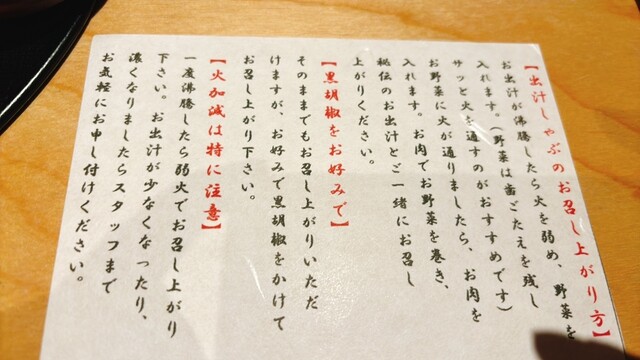 【出汁しゃぶのお召し上がり方】
お出汁が沸騰したら火を弱め、野菜を
入れます。(野菜は歯ごたえを残し
サッと火を通すのがおすすめです)
お野菜に火が通りましたら、お肉を
入れます。お肉でお野菜を巻き、
秘伝のお出汁とご一緒にお召し
上がりください。
【黒胡椒をお好みで】
そのままでもお召し上がりいただ
けますが、お好みで黒胡椒をかけて
お召し上がり下さい。
【火加減は特に注意】
一度沸騰したら弱火でお召し上がり
下さい。お出汁が少なくなったり、
濃くなりましたらスタッフまで
お気軽にお申し付けください。